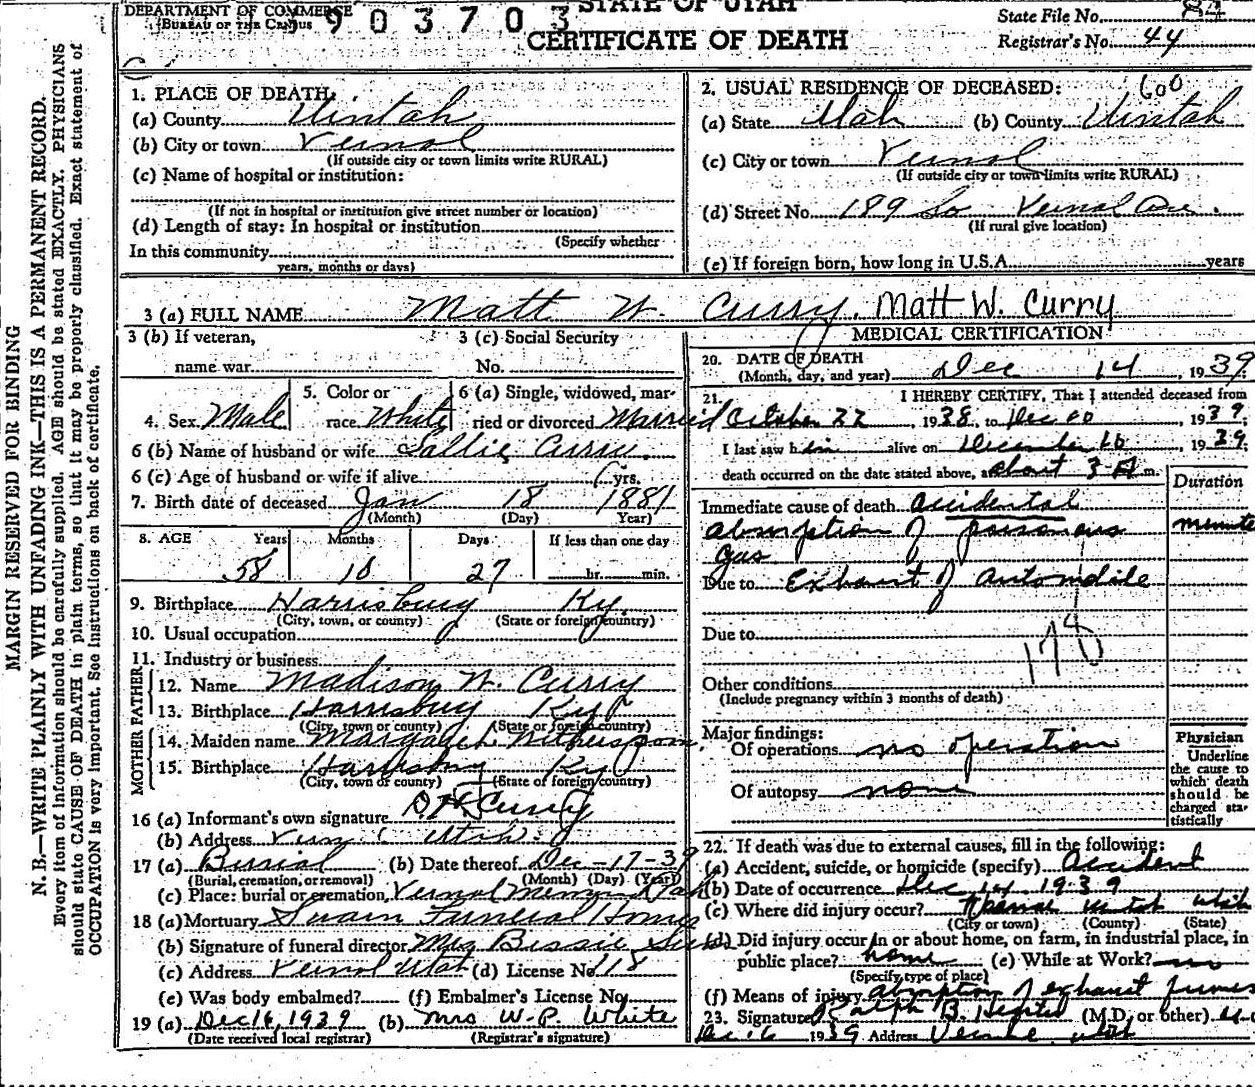 DEPARTMENT OF COMMERCE
BUREAU OF THE CENSUS
903703
STATE OF UTAH
CERTIFICATE OF DEATH
State File No. 84
Registrar's No. 44
MARGIN RESERVED FOR BINDING
N. B.—WRITE PLAINLY WITH UNFADING INK—THIS IS A PERMANENT RECORD.
Every item of information should be carefully supplied. AGE should be stated EXACTLY. PHYSICIANS
should state CAUSE OF DEATH in plain terms, so that it may be properly classified. Exact statement of
OCCUPATION is very important. See instructions on back of certificate.
1. PLACE OF DEATH:
(a) County Uintah
(b) City or town Vernal
(If outside city or town limits write RURAL)
(c) Name of hospital or institution:
(If not in hospital or institution give street number or location)
(d) Length of stay: In hospital or institution
(Specify whether
In this community
years, months or days)
2. USUAL RESIDENCE OF DECEASED: 600
(a) State Utah (b) County Uintah
(c) City or town Vernal
(If outside city or town limits write RURAL)
(d) Street No. 189 So Vernal Ave.
(If rural give location)
(e) If foreign born, how long in U.S.A. years
3 (a) FULL NAME Matt W. Curry. Matt W. Curry
3 (b) If veteran,
name war
3 (c) Social Security
No.
4. Sex Male
5. Color or
race White
6 (a) Single, widowed, mar-
ried or divorced Married
6 (b) Name of husband or wife Sallie Curry.
6 (c) Age of husband or wife if alive yrs.
7. Birth date of deceased Jan 18 1881
(Month) (Day) Year)
8. AGE Years Months Days If less than one day
58 10 27 hr. min.
9. Birthplace Harrisburg Ky.
(City, town, or county) (State or foreign country)
10. Usual occupation
11. Industry or business
FATHER
12. Name Madison W. Curry
13. Birthplace Harrisburg Ky
(City, town or county) (State or foreign country)
MOTHER
14. Maiden name Margaret Witherspoon
15. Birthplace Harrisburg Ky
(City, town or county) (State or foreign country)
16 (a) Informant's own signature Curry
(b) Address Utah.
17 (a) Burial (b) Date thereof Dec-17-39
(Burial, cremation, or removal) (Month) (Day) (Year)
(c) Place: burial or cremation Vernal Utah
18 (a) Mortuary Swain Funeral Home
(b) Signature of funeral director Mrs Bessie
(c) Address Vernal Utah (d) License No. 118
(e) Was body embalmed? (f) Embalmer's License No.
19 (a) Dec 16, 1939 (b) Mrs W. P. White
(Date received local registrar) (Registrar's signature)
MEDICAL CERTIFICATION
20. DATE OF DEATH
(Month, day, and year) Dec 14, 1939
21. I HEREBY CERTIFY, That I attended deceased from
October 22, 1938, to Dec , 1939,
I last saw him alive on December 16, 1939,
death occurred on the date stated above, at about 3 A m.
Duration
Immediate cause of death accidental
absorption of poisonous minute
gas
Due to Exhaust of Automobile
Due to
178
Other conditions
(Include pregnancy within 3 months of death)
Major findings:
Of operations no operation
Of autopsy none
Physician
Underline
the cause to
which death
should be
charged sta-
tistically
22. If death was due to external causes, fill in the following:
(a) Accident, suicide, or homicide (specify) Accident
(b) Date of occurrence Dec 14 1939
(c) Where did injury occur? Utah
(City or town) (County) (State)
(d) Did injury occur in or about home, on farm, in industrial place, in
public place? home (e) While at Work? no
(Specify type of place)
(f) Means of injury absorption of exhaust fumes
23. Signature Ralph B. (M.D. or other)
1939 Address